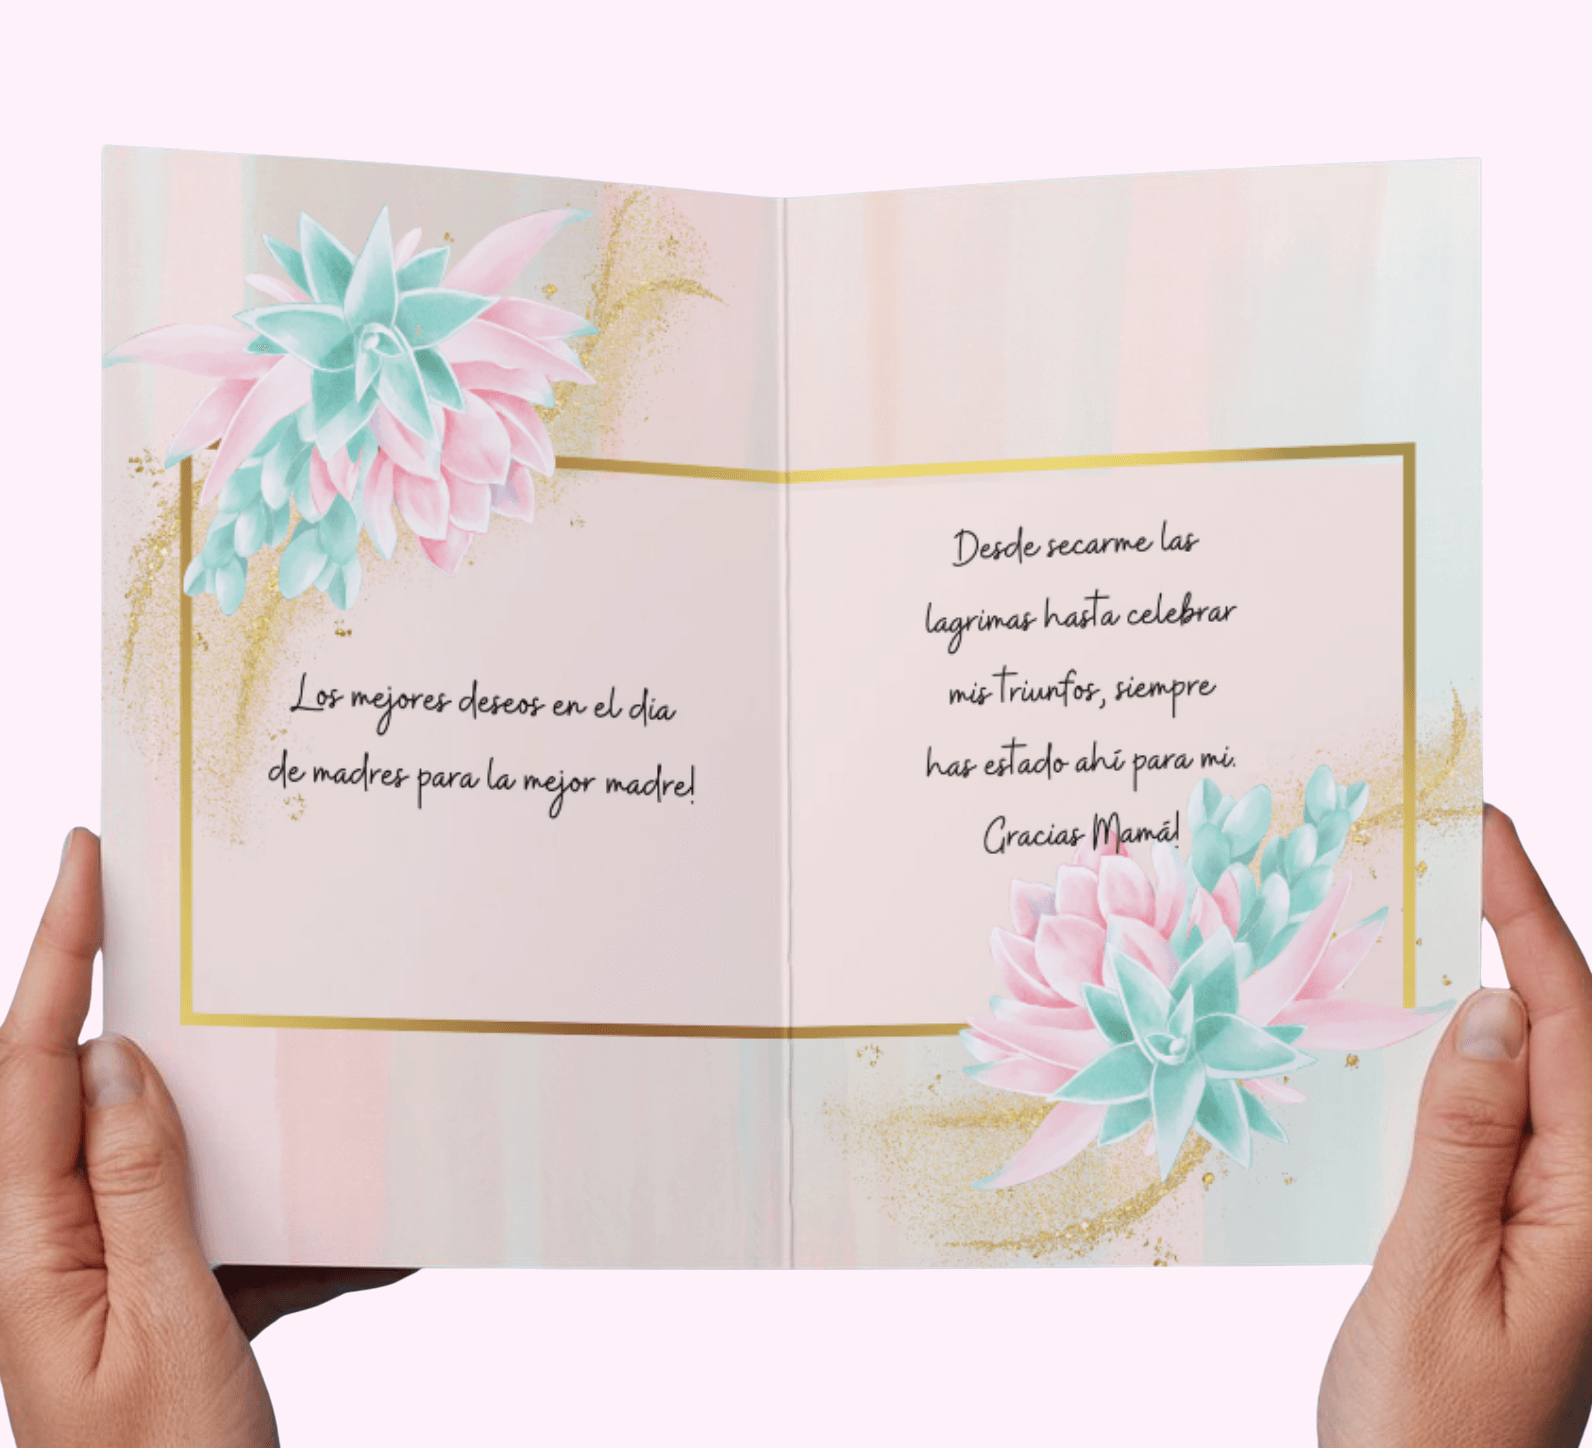 Los mejores deseos en el dia
de madres para la mejor madre!
Desde secarme las
lagrimas hasta celebrar
mis triunfos, siempre
has estado ahí para mi.
Gracias Mamá!